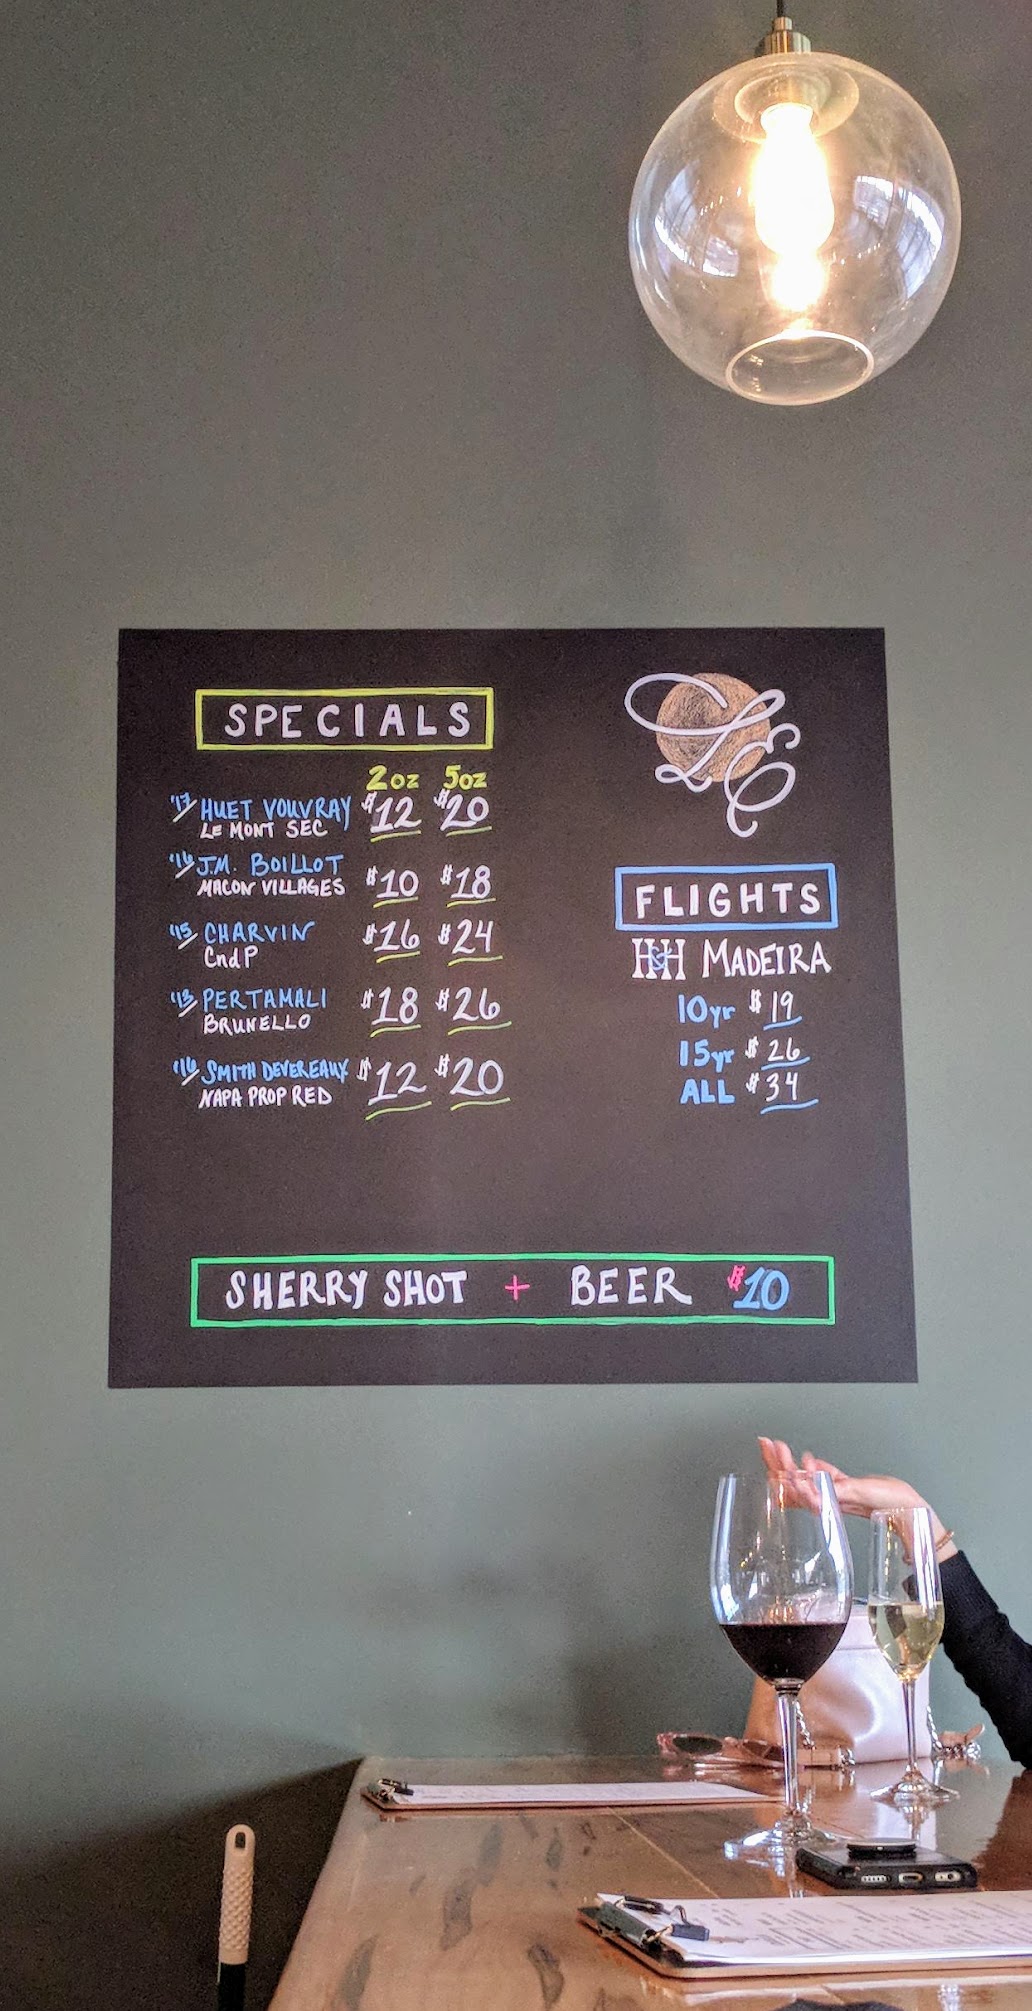 SPECIALS
2oz 5oz
'17/ HUET VOUVRAY $12 $20
LE MONT SEC
'16/ J.M. BOILLOT
MACON VILLAGES $10 $18
'15/ CHARVIN $16 $24
CndP
'13/ PERTAMALI $18 $26
BRUNELLO
'16/ SMITH DEVEREAUX $12 $20
NAPA PROP RED
LE
FLIGHTS
H&H MADEIRA
10yr $19
15yr $26
ALL $34
SHERRY SHOT + BEER $10